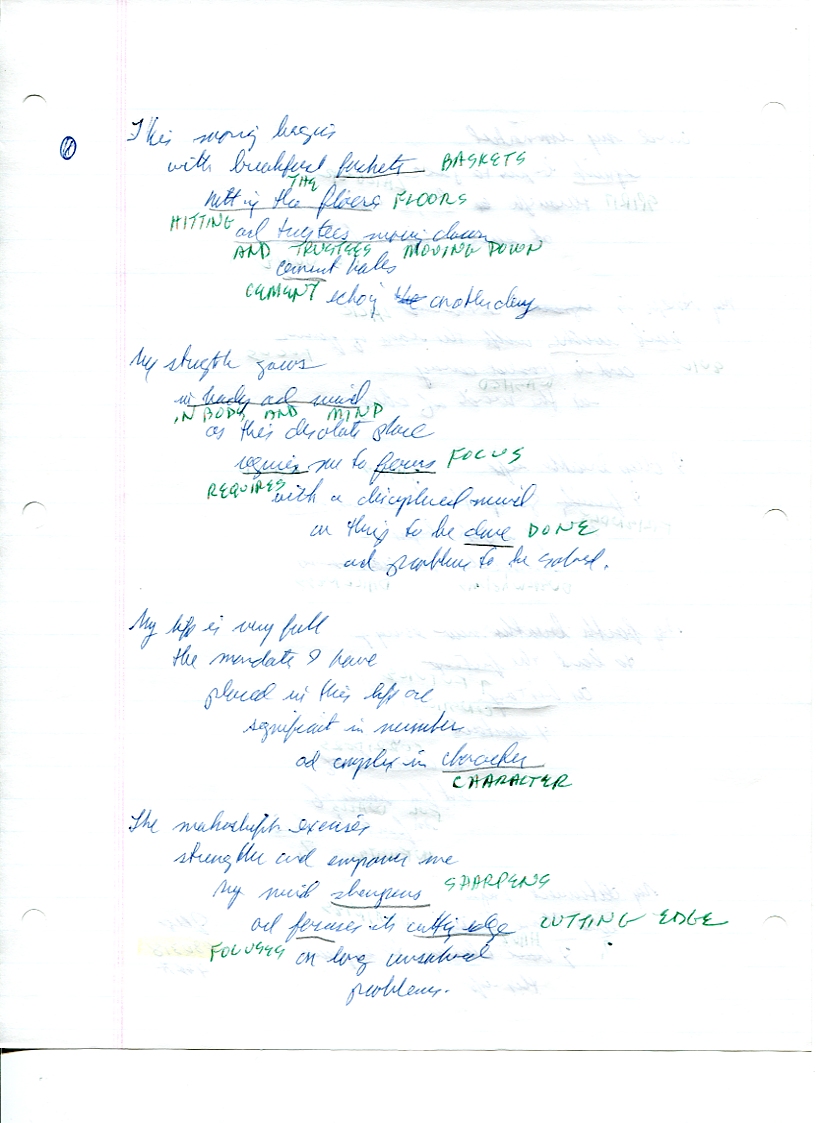 This morning begins
with breakfast baskets BASKETS
THE
hitting the floors FLOORS
HITTING
and trustees moving down
AND TRUSTEES MOVING DOWN
cement halls
CEMENT echoing the another day
My strength grows
in body and mind
IN BODY AND MIND
as this desolate place
requires me to focus FOCUS
REQUIRES with a disciplined mind
on things to be done DONE
and problems to be solved.
My life is very full
the mandates I have
placed in this life are
significant in number
and complex in character
CHARACTER
The makeshift exercises
strengthen and empower me
My mind sharpens SHARPENS
and focuses its cutting edge CUTTING EDGE
FOCUSES on long unsolved
problems.